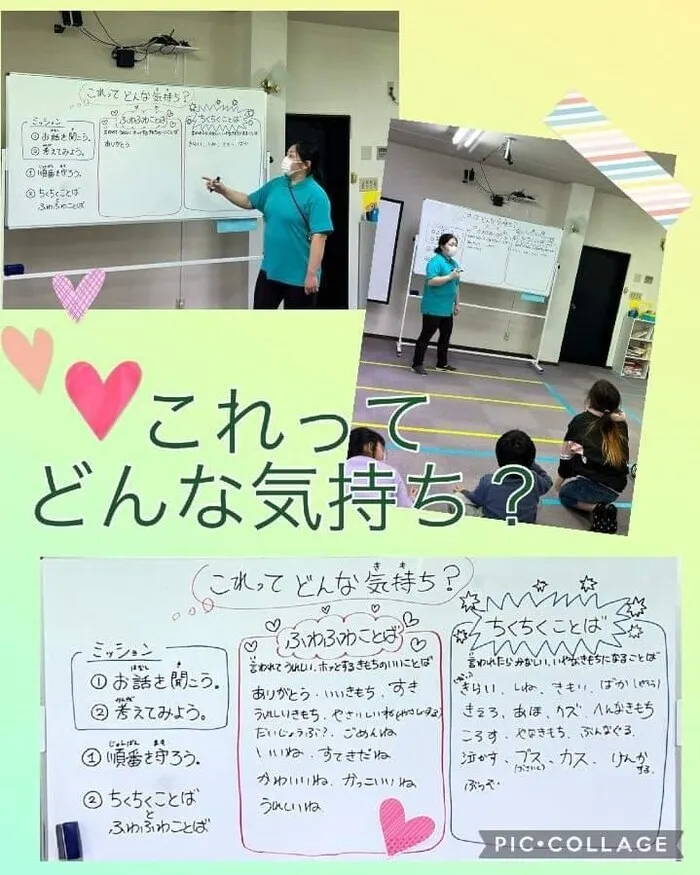 これって どんな気持ち?
ミッション
① お話を聞こう。
② 考えてみよう。
① 順番を守ろう。
② ちくちくことば
ふわふわことば
ふわふわことば
ありがとう
ちくちくことば
これって どんな気持ち?
これって
どんな気持ち?
これって どんな気持ち?
き も
ミッション
はなし き
① お話を聞こう。
かんが
② 考えてみよう。
じゅんばん まも
① 順番を守ろう。
② ちくちくことば
と
ふわふわことば
ふわふわことば
言われてうれしい、ホッとするきもちのいいことば
ありがとう・いいきもち、すき
うれしいきもち、やさしいね
だいじょうぶ?、ごめんね
いいね、すてきだね
かわいいね、かっこいいね
うれしいね
ちくちくことば
言われたらかなしい、いやなきもちになることば
きらい、しね、きもい、ばか
きえろ、あほ、クズ、へんなきもち
ころす、やなきもち、ぶんなぐる
泣かす、ブス、カス、けんか
する
PIC•COLLAGE